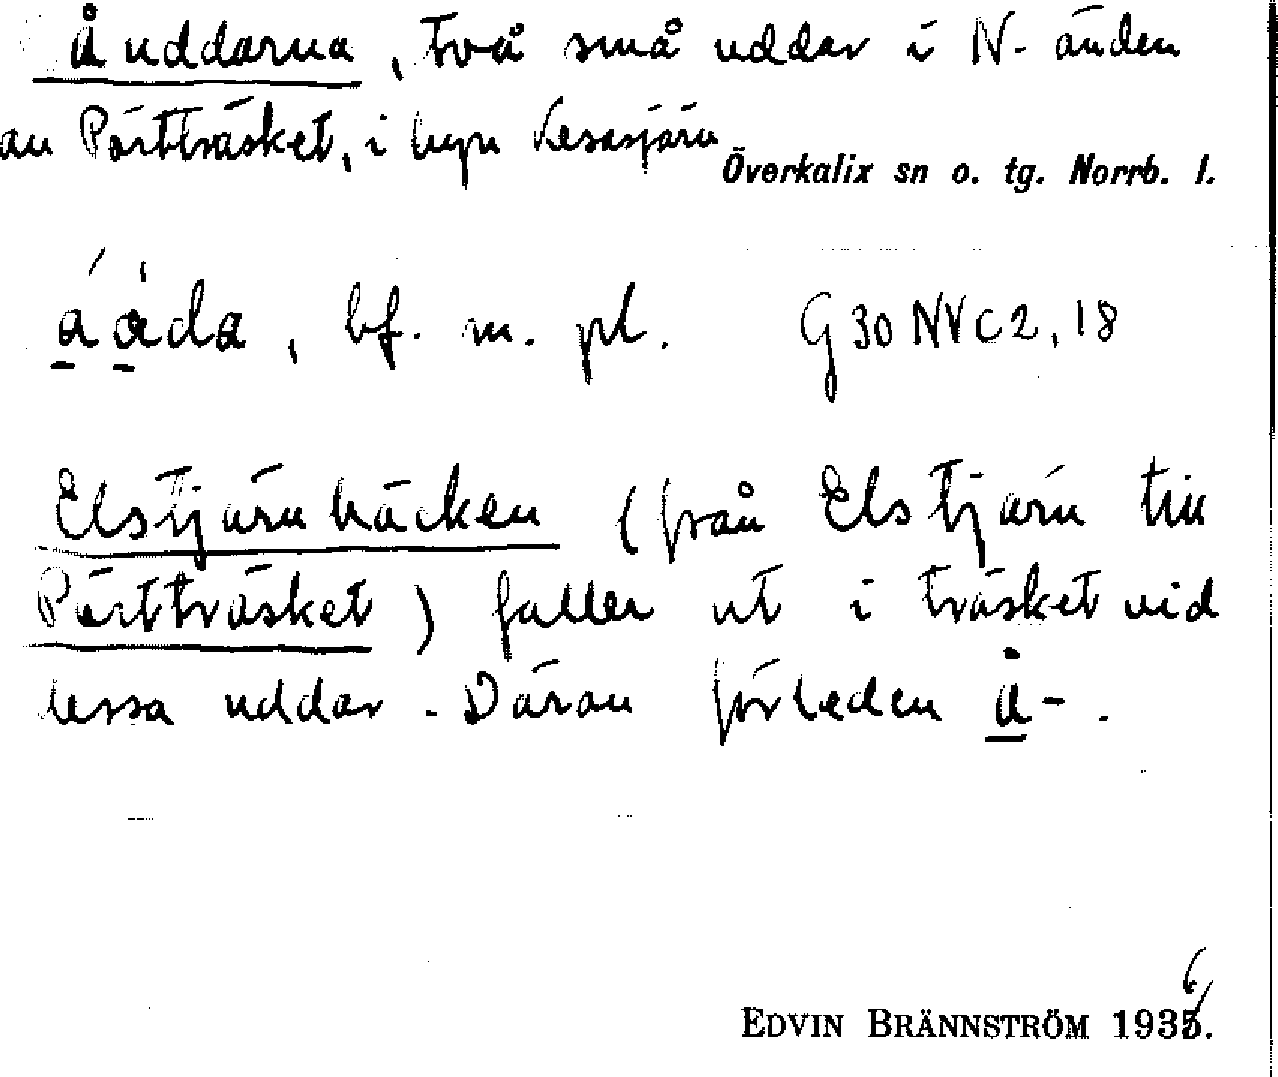 Åuddarna, två små uddar i N-änden
av Pörtträsket, i byn Lesasjärv
Överkalix sn o. tg. Norrb. l.
bf. m. pl. G30 NV c 2, 18
Elstjärnbäcken (från Elstjärn till
Pörtträsket) faller ut i träsket vid
dessa uddar. Därav förleden å-.
EDVIN BRÄNNSTRÖM 1936.